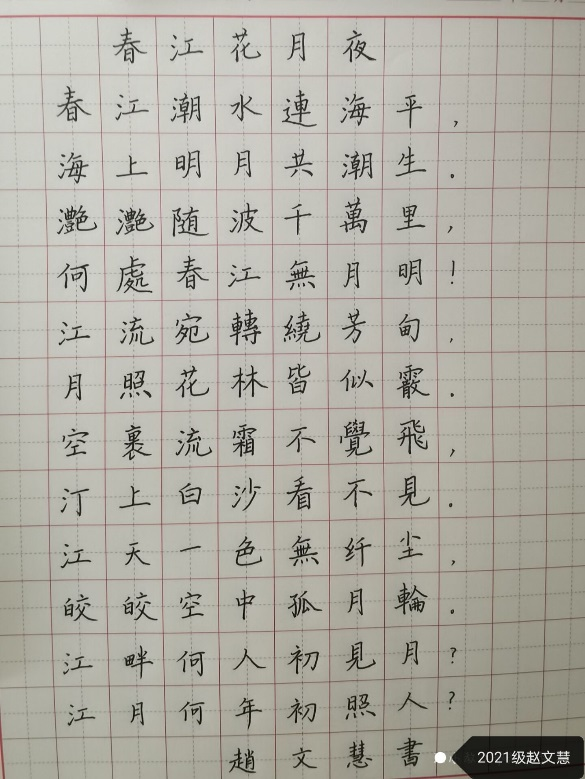 春江花月夜
春江潮水連海平，
海上明月共潮生．
灔灔随波千萬里，
何處春江無月明！
江流宛轉繞芳甸，
月照花林皆似霰．
空裏流霜不覺飛，
汀上白沙看不見．
江天一色無纤尘，
皎皎空中孤月輪．
江畔何人初見月？
江月何年初照人？
趙文慧書
2021级赵文慧